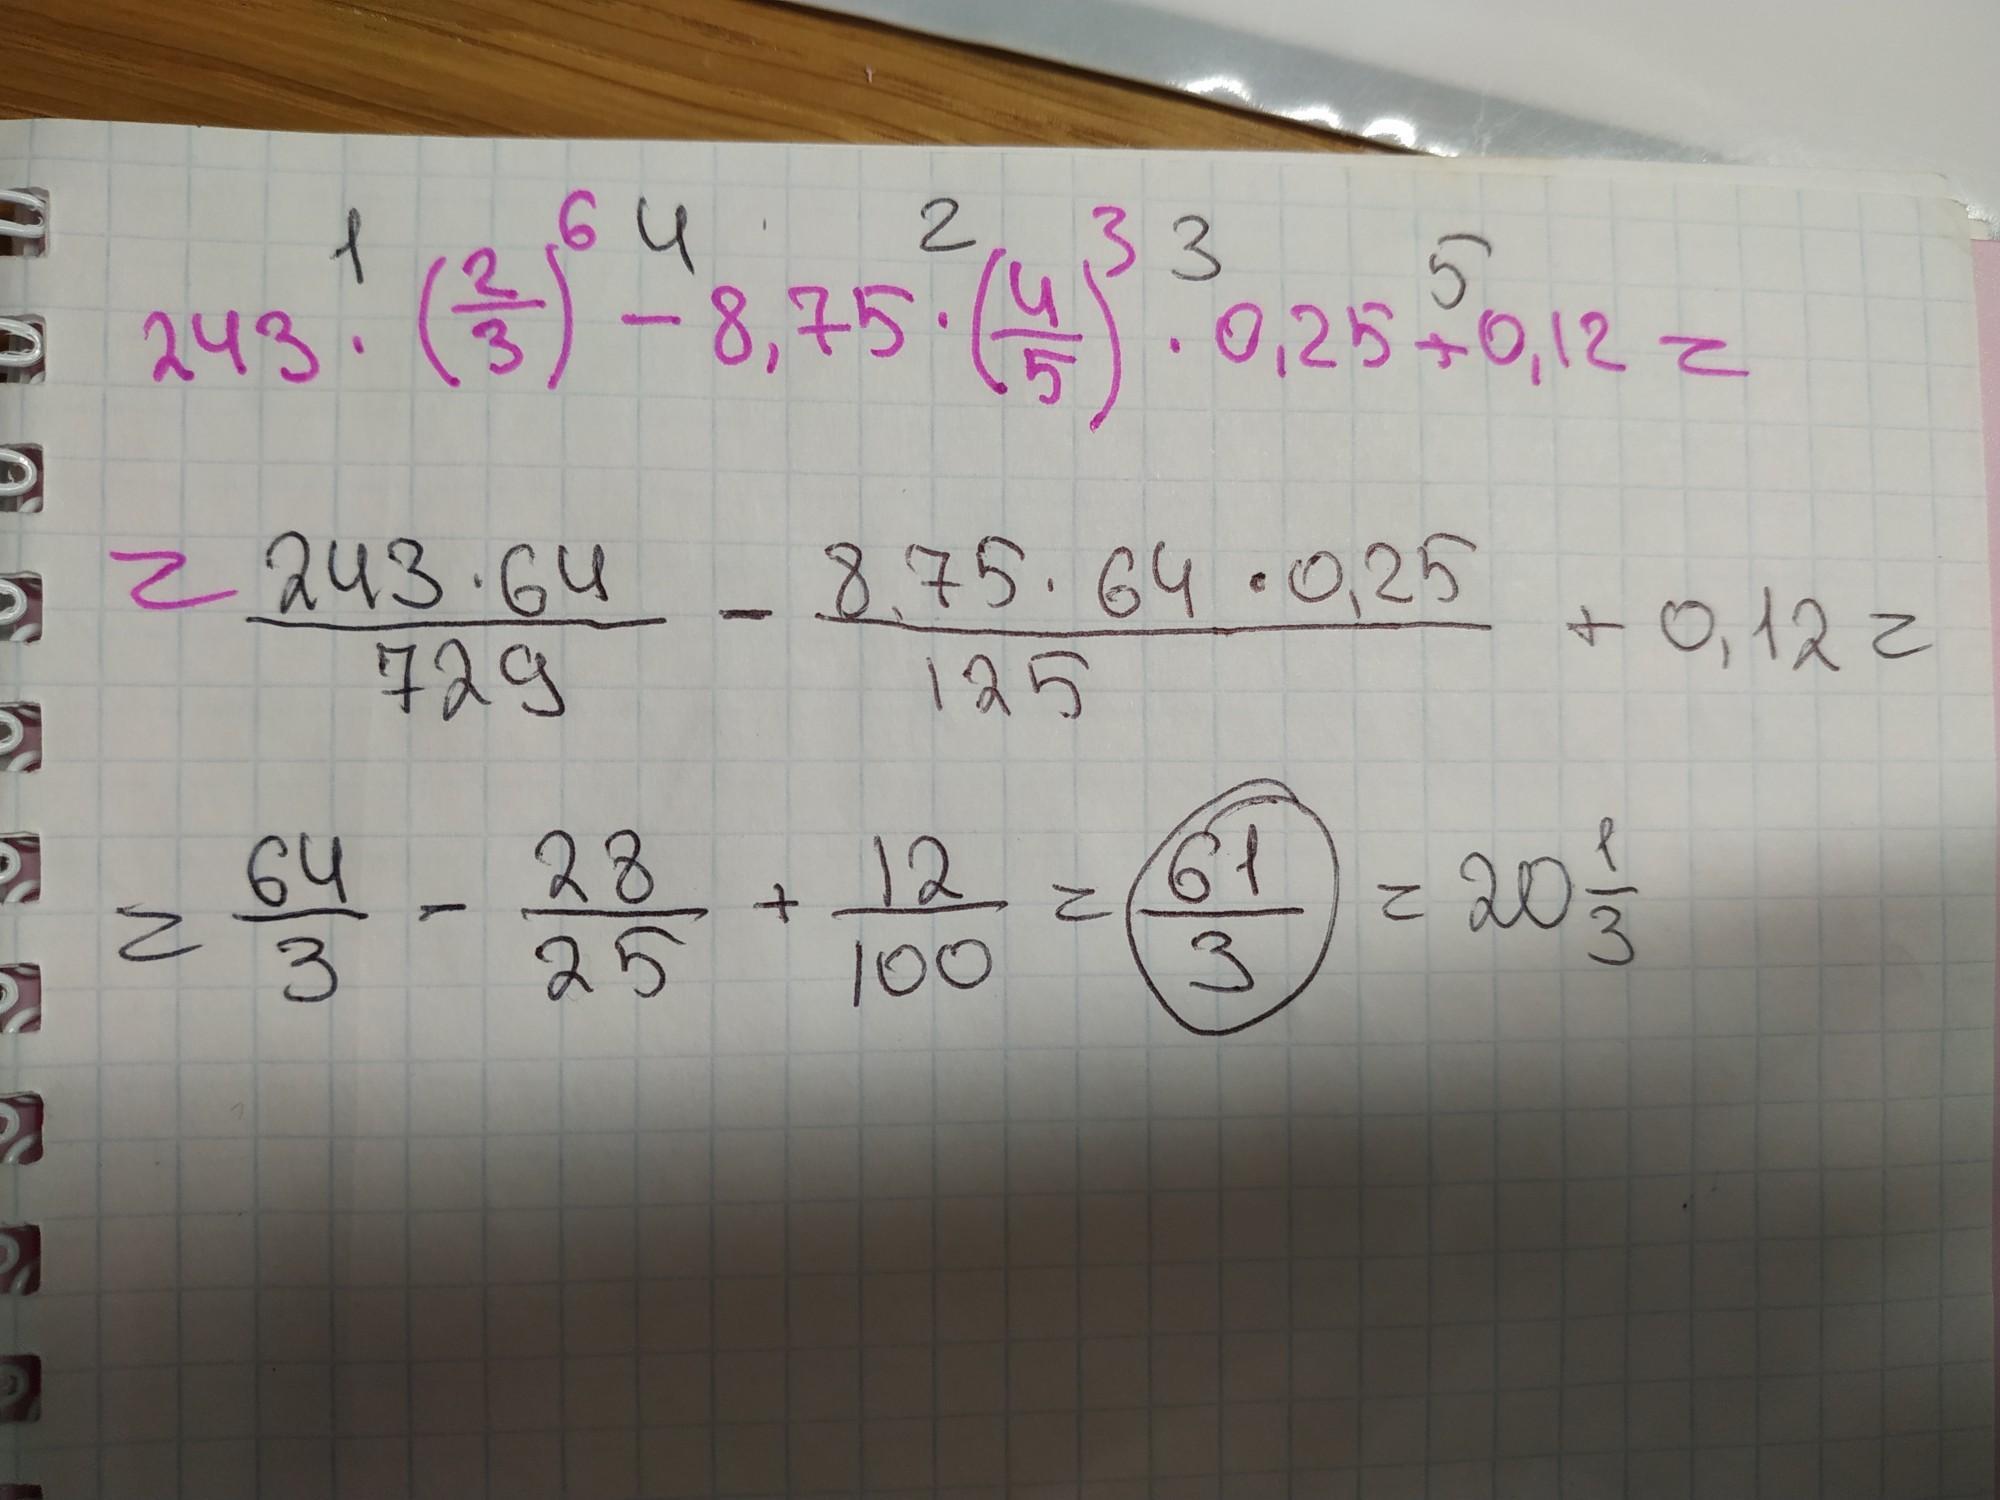 1 4 2 3 5
243 · (2/3)^6 - 8,75 · (4/5)^3 · 0,25 + 0,12 =
= 243 · 64 / 729 - 8,75 · 64 · 0,25 / 125 + 0,12 =
= 64/3 - 28/25 + 12/100 = 61/3 = 20 1/3